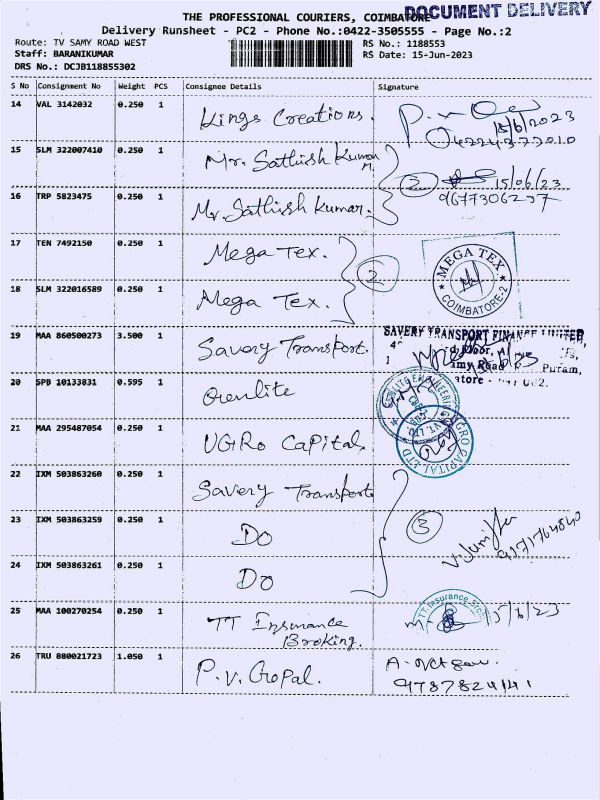 DOCUMENT DELIVERY
THE PROFESSIONAL COURIERS, COIMBATORE
Delivery Runsheet - PC2 - Phone No.:0422-3505555 - Page No.:2
Route: TV SAMY ROAD WEST RS No.: 1188553
Staff: BARANIKUMAR RS Date: 15-Jun-2023
DRS No.: DCJB118855302
S No Consignment No Weight PCS Consignee Details Signature
14 VAL 3142032 0.250 1 Kings Creations.
15/6/2023
15 SLM 322007410 0.250 1 Mr. Sathish Kumar M.
2 15/06/23
16 TRP 5823475 0.250 1 Mr. Sathish Kumar. 9677306237
17 TEN 7492150 0.250 1 Mega Tex.
2 MEGA TEX COIMBATORE-2
18 SLM 322016589 0.250 1 Mega Tex.
19 MAA 860500273 3.500 1 Savery Transport. SAVERY TRANSPORT FINANCE LIMITED,
20 SPB 10133831 0.595 1
21 MAA 295487054 0.250 1 UGRO Capital. UGRO CAPITAL LTD
22 IXM 503863260 0.250 1 Savery Transport
23 IXM 503863259 0.250 1 Do 3
24 IXM 503863261 0.250 1 Do
25 MAA 100270254 0.250 1 TT Insurance Broking. TT.Insurance 15/6/23
26 TRU 880021723 1.050 1 P.V. Gopal.
9787824141